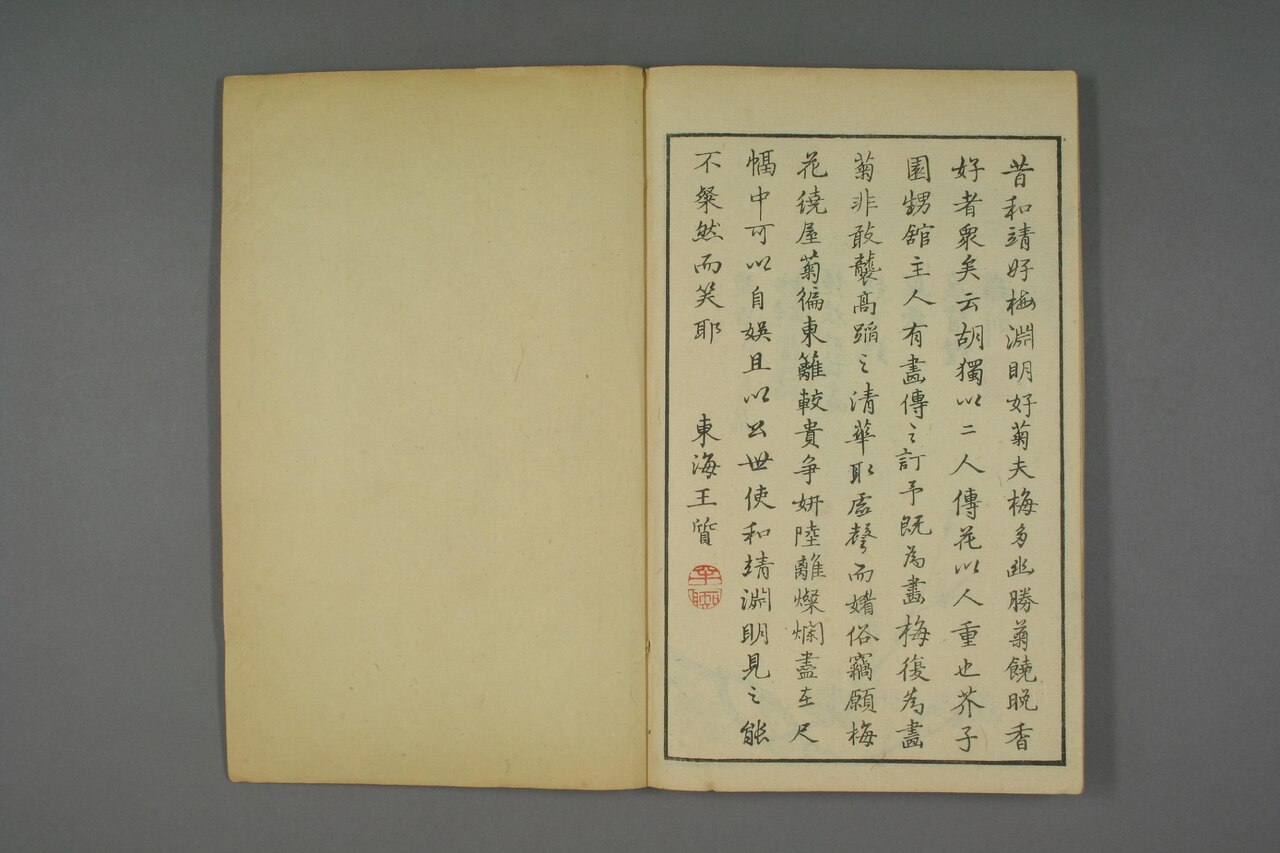 昔和靖好梅淵明好菊夫梅多幽勝菊饒晚香
好者衆矣云胡獨以二人傳花以人重也芥子
園甥舘主人有畫傳之訂予既為畫梅復為畫
菊非敢襲高蹈之清華取虛聲而媚俗竊願梅
花繞屋菊徧東籬較貴爭妍陸離燦爛盡在尺
幅中可以自娛且以公世使和靖淵明見之能
不粲然而笑耶
東海王質